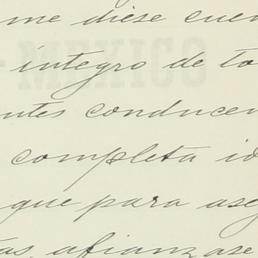 me diese cuen
integro de to
ntes conducen
completa id
que para ase
tas afianzase